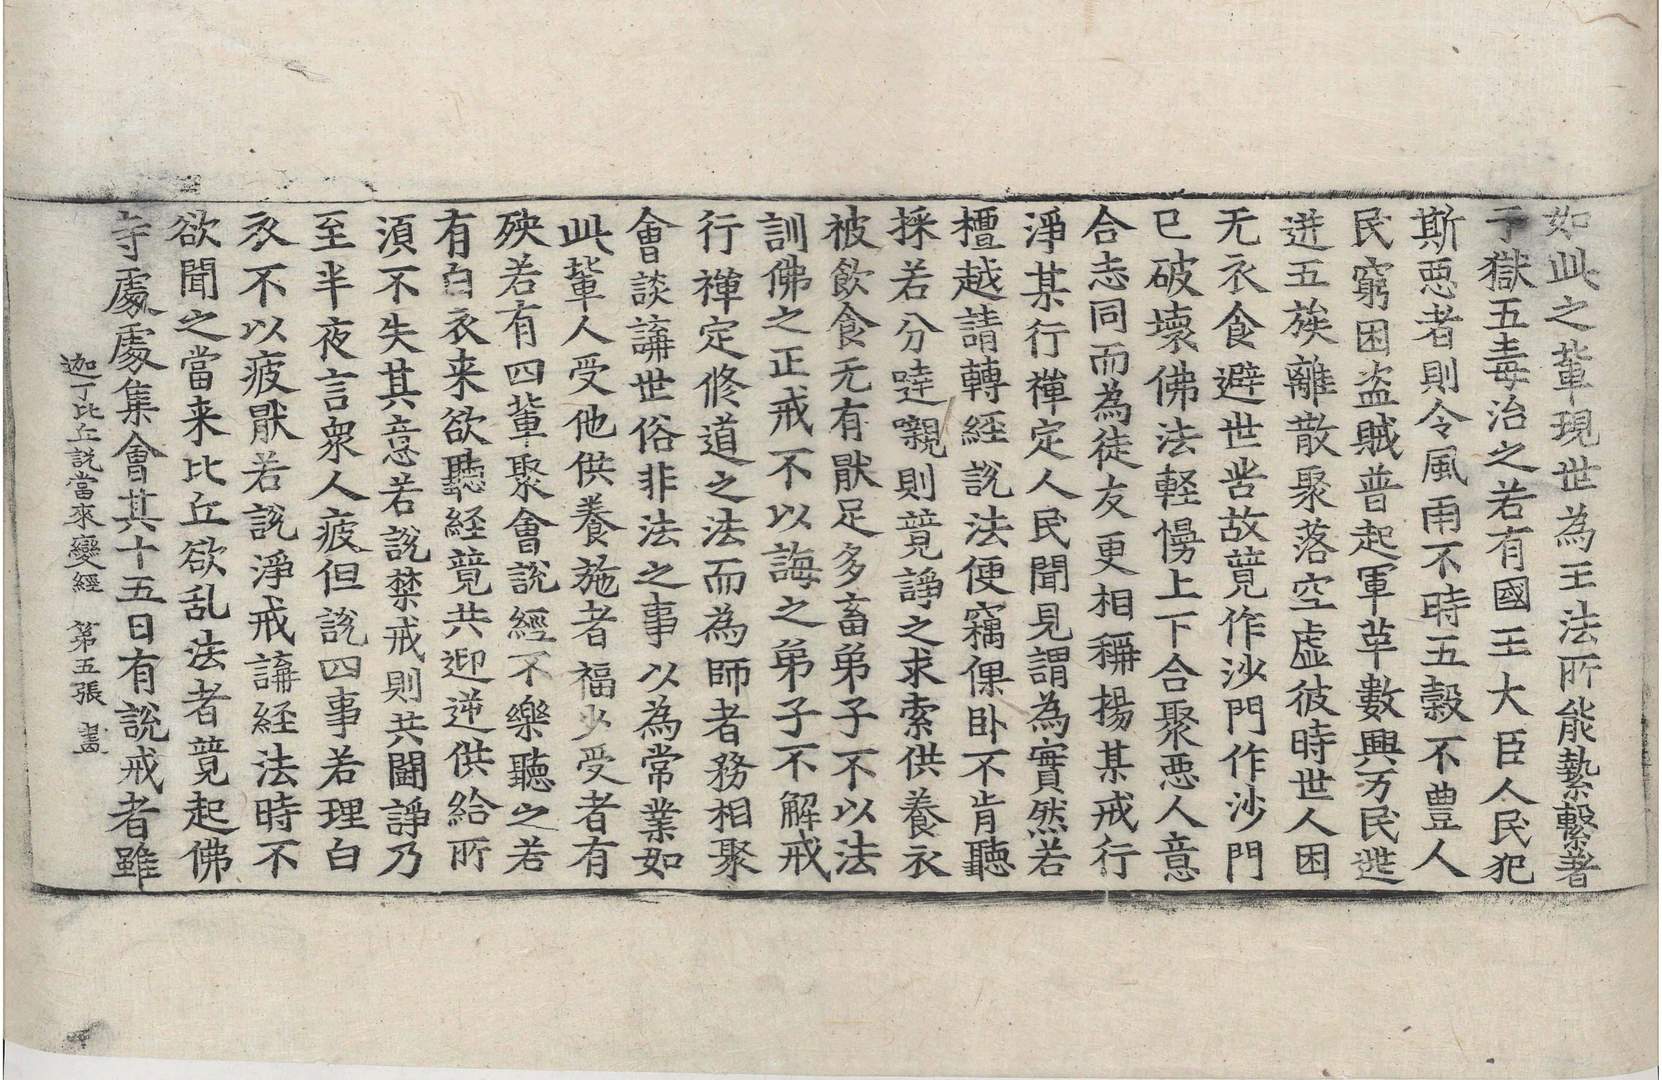 如此之軰現世為王法所能縶繫著
于獄五毒治之若有國王大臣人民犯
斯惡者則令風雨不時五穀不豊人
民窮困盗賊普起軍革數興万民迸
迸五族離散聚落空虛彼時世人困
无衣食避世苦故竟作沙門作沙門
已破壞佛法軽慢上下合聚惡人意
合志同而為徒友更相稱揚某戒行
淨某行禪定人民聞見謂為實然若
檀越請轉經說法便竊倮卧不肯聽
採若分噠嚫則竟諍之求索供養衣
被飲食无有猒足多畜弟子不以法
訓佛之正戒不以誨之弟子不解戒
行禪定修道之法而為師者務相聚
會談講世俗非法之事以為常業如
此軰人受他供養施者福少受者有
殃若有四軰聚會說經不樂聽之若
有白衣来欲聽経竟共迎逆供給所
湏不失其意若說禁戒則共鬪諍乃
至半夜言衆人疲但說四事若理白
衣不以疲猒若說淨戒講経法時不
欲聞之當来比丘欲乱法者竟起佛
寺處處集會其十五日有說戒者雖
迦丁比丘說當來變經 第五張 畫